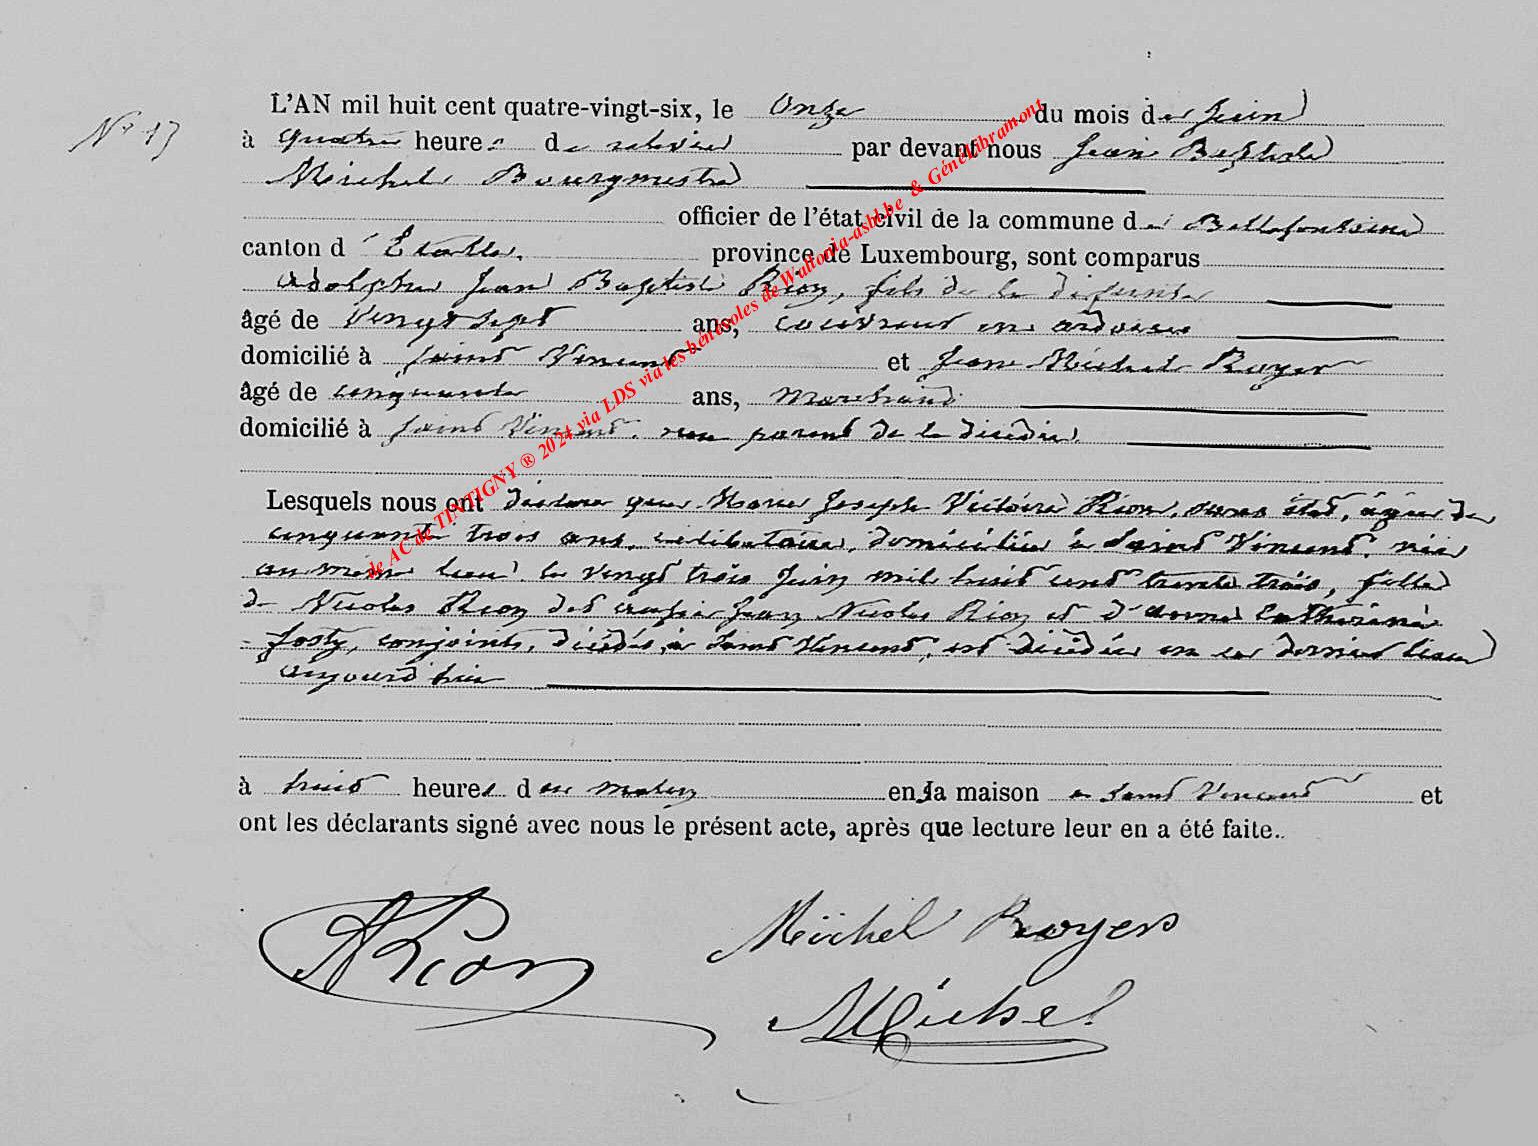 N° 13
L'AN mil huit cent quatre-vingt-six, le Onze du mois de Juin
à quatre heures de relevée par devant nous Jean Baptiste
Michel Bourgmestre
officier de l'état civil de la commune de Bellefontaine
canton d'Etalle, province de Luxembourg, sont comparus
Adolphe Jean Baptiste Rion, fils de la défunte
âgé de Vingt sept ans, couvreur en ardoises
domicilié à Saint Vincent et Jean Michel Royer
âgé de cinquante ans, Marchand
domicilié à Saint Vincent. non parent de la décédée.
Lesquels nous ont déclaré que Marie Joseph Victoire Rion, sans état, âgée de
cinquante trois ans, célibataire, domiciliée à Saint Vincent, née
au même lieu le vingt trois Juin mil huit cent trente trois, fille
de Nicolas Rion dit aussi Jean Nicolas Rion et d'Anne Catherine
Josty, conjoints, décédés à Saint Vincent, est décédée en ce dernier lieu
aujourd'hui
à huit heures du matin en sa maison à Saint Vincent et
ont les déclarants signé avec nous le présent acte, après que lecture leur en a été faite.
ARion
Michel Royer
Michel
de AC de TINTIGNY ® 2024 via LDS via les bénévoles de Wallonia-asbl.be & GénéLibramont